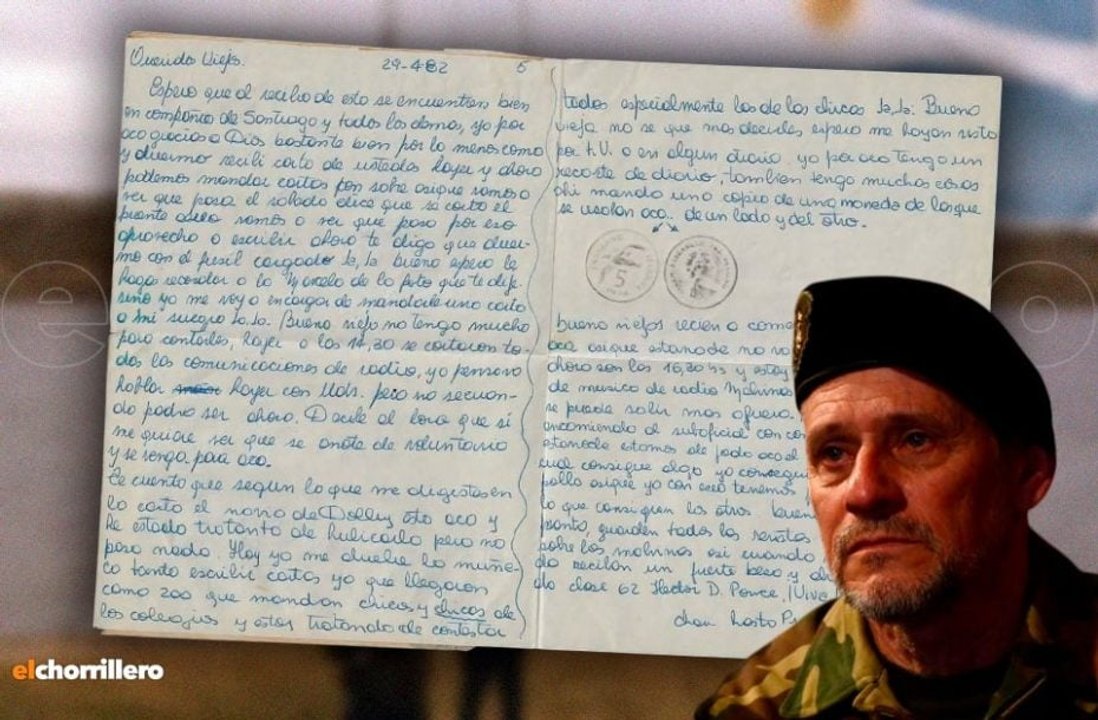 Queridos Viejos. 29-4-82 5
Espero que al recibo de esto se encuentren bien
en compañia de Santiago y todos los demas, yo por
aca gracias a Dios bastante bien por lo menos como
y duermo recibi carta de ustedes hayer y ahora
podemos mandar cartas con sobre asique vamos a
ver que pasa el soldado dice que se corto el
puente aereo vamos a ver que pasa por eso
aprovecho a escribir ahora te digo que duer-
mo con el fusil cargado Ja, Ja bueno espero le
haga recordar a la Marcela de la foto que te dije
sino yo me voy a encargar de mandarle una carta
a mi suegro Ja. Ja. Bueno viejo no tengo mucho
para contarles, hayer a las 14,30 se cortaron to-
das las comunicaciones de radio, yo pensava
hablar hayer con Uds. pero no se cuan-
do podra ser ahora. Decile al lora que si
me quiere ver que se anote de voluntario
y se venga para aca.
Le cuento que segun lo que me dijeron en
la carta el novio de Dolly esta aca y
he estado tratando de hubicarlo pero no
paso nada Hoy ya me duele la muñe-
ca tanto escribir cartas ya que llegaron
como 200 que mandan chicos y chicas de
los colegios y estoy tratando de contestar
todas especialmente las de las chicas Ja, Ja. Bueno
vieja no se que mas decirles espero me hayan visto
por t.V. o en algun diario yo por aca tengo un
recorte de diario, tambien tengo muchas cosas
ahi mando una copia de una moneda de las que
se usaban aca.. de un lado y del otro.
5
bueno viejos recien a come
aca asique esta tarde no va
ahora son las 16,30 hs y estoy
de musica de radio Malvinas
se puede salir mas afuera.
encomienda al suboficial con co
esta tarde estamos de joda aca el
cual consigue algo yo consegui
pollo asique ya con eso tenemos
lo que consiguen los otros bueno
pronto, guarden todas las revistas
sobre las malvinas asi cuando
do reciban un fuerte beso y a
do clase 62 Hector D. Ponce, ¡Viva
chau hasta P
elchorrillero